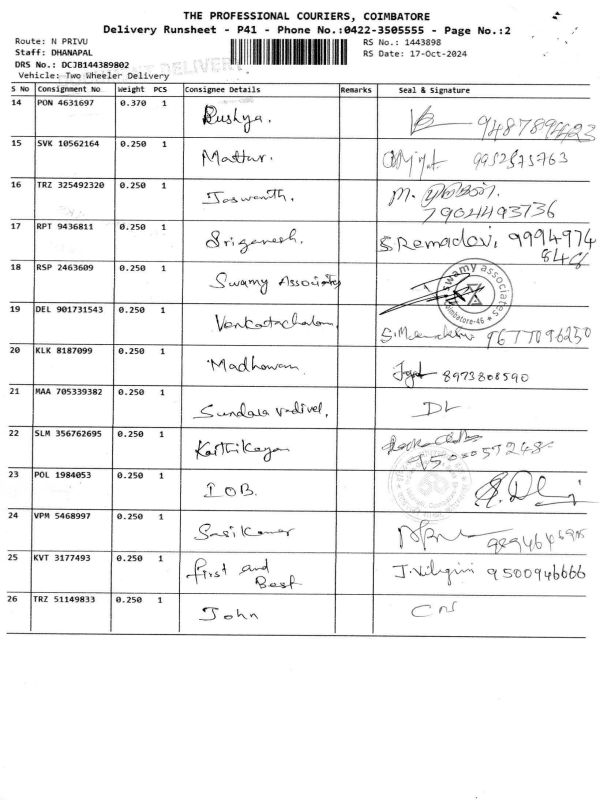 THE PROFESSIONAL COURIERS, COIMBATORE
Delivery Runsheet - P41 - Phone No.:0422-3505555 - Page No.:2
Route: N PRIVU RS No.: 1443898
Staff: DHANAPAL RS Date: 17-Oct-2024
DRS No.: DCJB144389802
Vehicle: Two Wheeler Delivery
S No Consignment No Weight PCS Consignee Details Remarks Seal & Signature
14 PON 4631697 0.370 1 Pushya.
15 SVK 10562164 0.250 1 Mattur.
16 TRZ 325492320 0.250 1 Jaswanth. M.
7904493736
17 RPT 9436811 0.250 1 Sriganesh. S. Remadevi, 9994974
18 RSP 2463609 0.250 1 Swamy Associates swamy associates
Coimbatore-46
19 DEL 901731543 0.250 1 Venkatachalam 9677096250
20 KLK 8187099 0.250 1 Madhavan 8973808590
21 MAA 705339382 0.250 1 Sundaravadivel, DL
22 SLM 356762695 0.250 1 Karthikeyan
23 POL 1984053 0.250 1 IOB.
24 VPM 5468997 0.250 1 Sasikumar
25 KVT 3177493 0.250 1 First and
Best 9500946666
26 TRZ 51149833 0.250 1 John